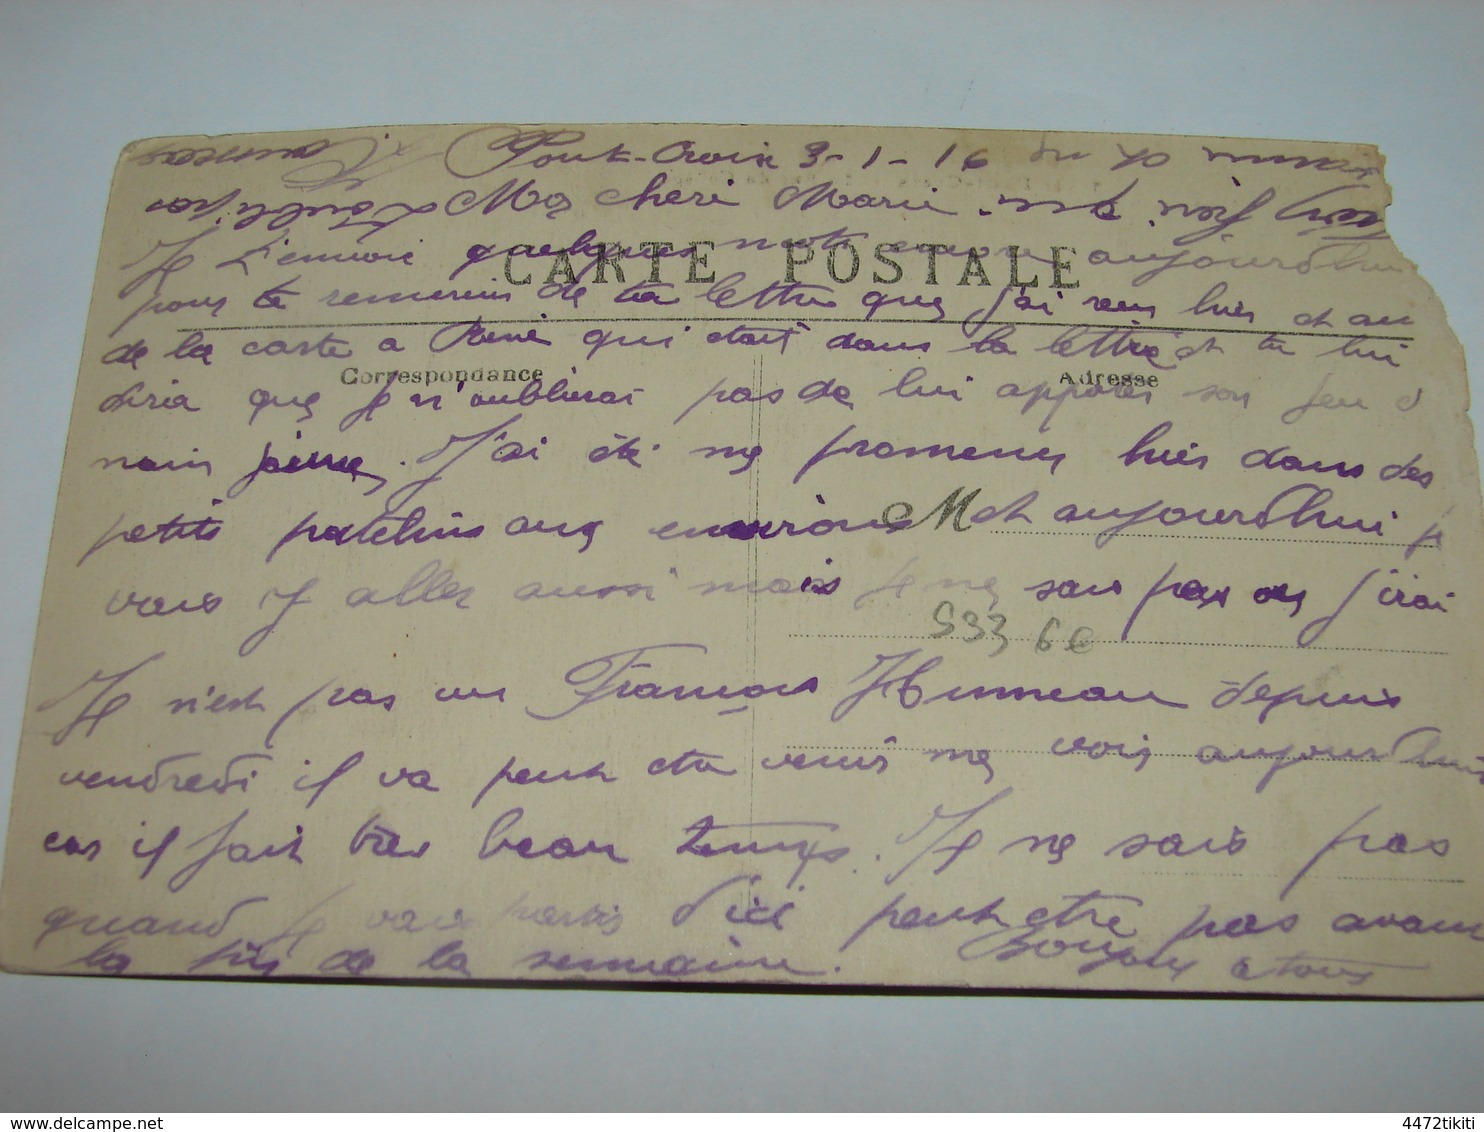 Pont-Croix 3-1-16
Ma cheri Marie
CARTE POSTALE
Je t'envoie quelques mots encore aujourd'hui
pour te remercier de ta lettre que j'ai reçu hier et au
de la carte a René qui était dans ta lettre et tu lui
Correspondance
Adresse
dira que je n'oublierai pas de lui apporter son jeu d
nain jaune. J'ai été me promener hier dans des
petits patelins aux environs et aujourd'hui je
M
vais y aller aussi mais je ne sais pas ou j'irai
533 6e
Je n'est pas vu François Hunneau depuis
vendredi il va peut etre venir me voir aujourd'hui
car il fait très beau temps. Je ne sais pas
quand je vais partir d'ici peut etre pas avant
la fin de la semaine. Bonjour a tous
delcampe.net
4472tikiti